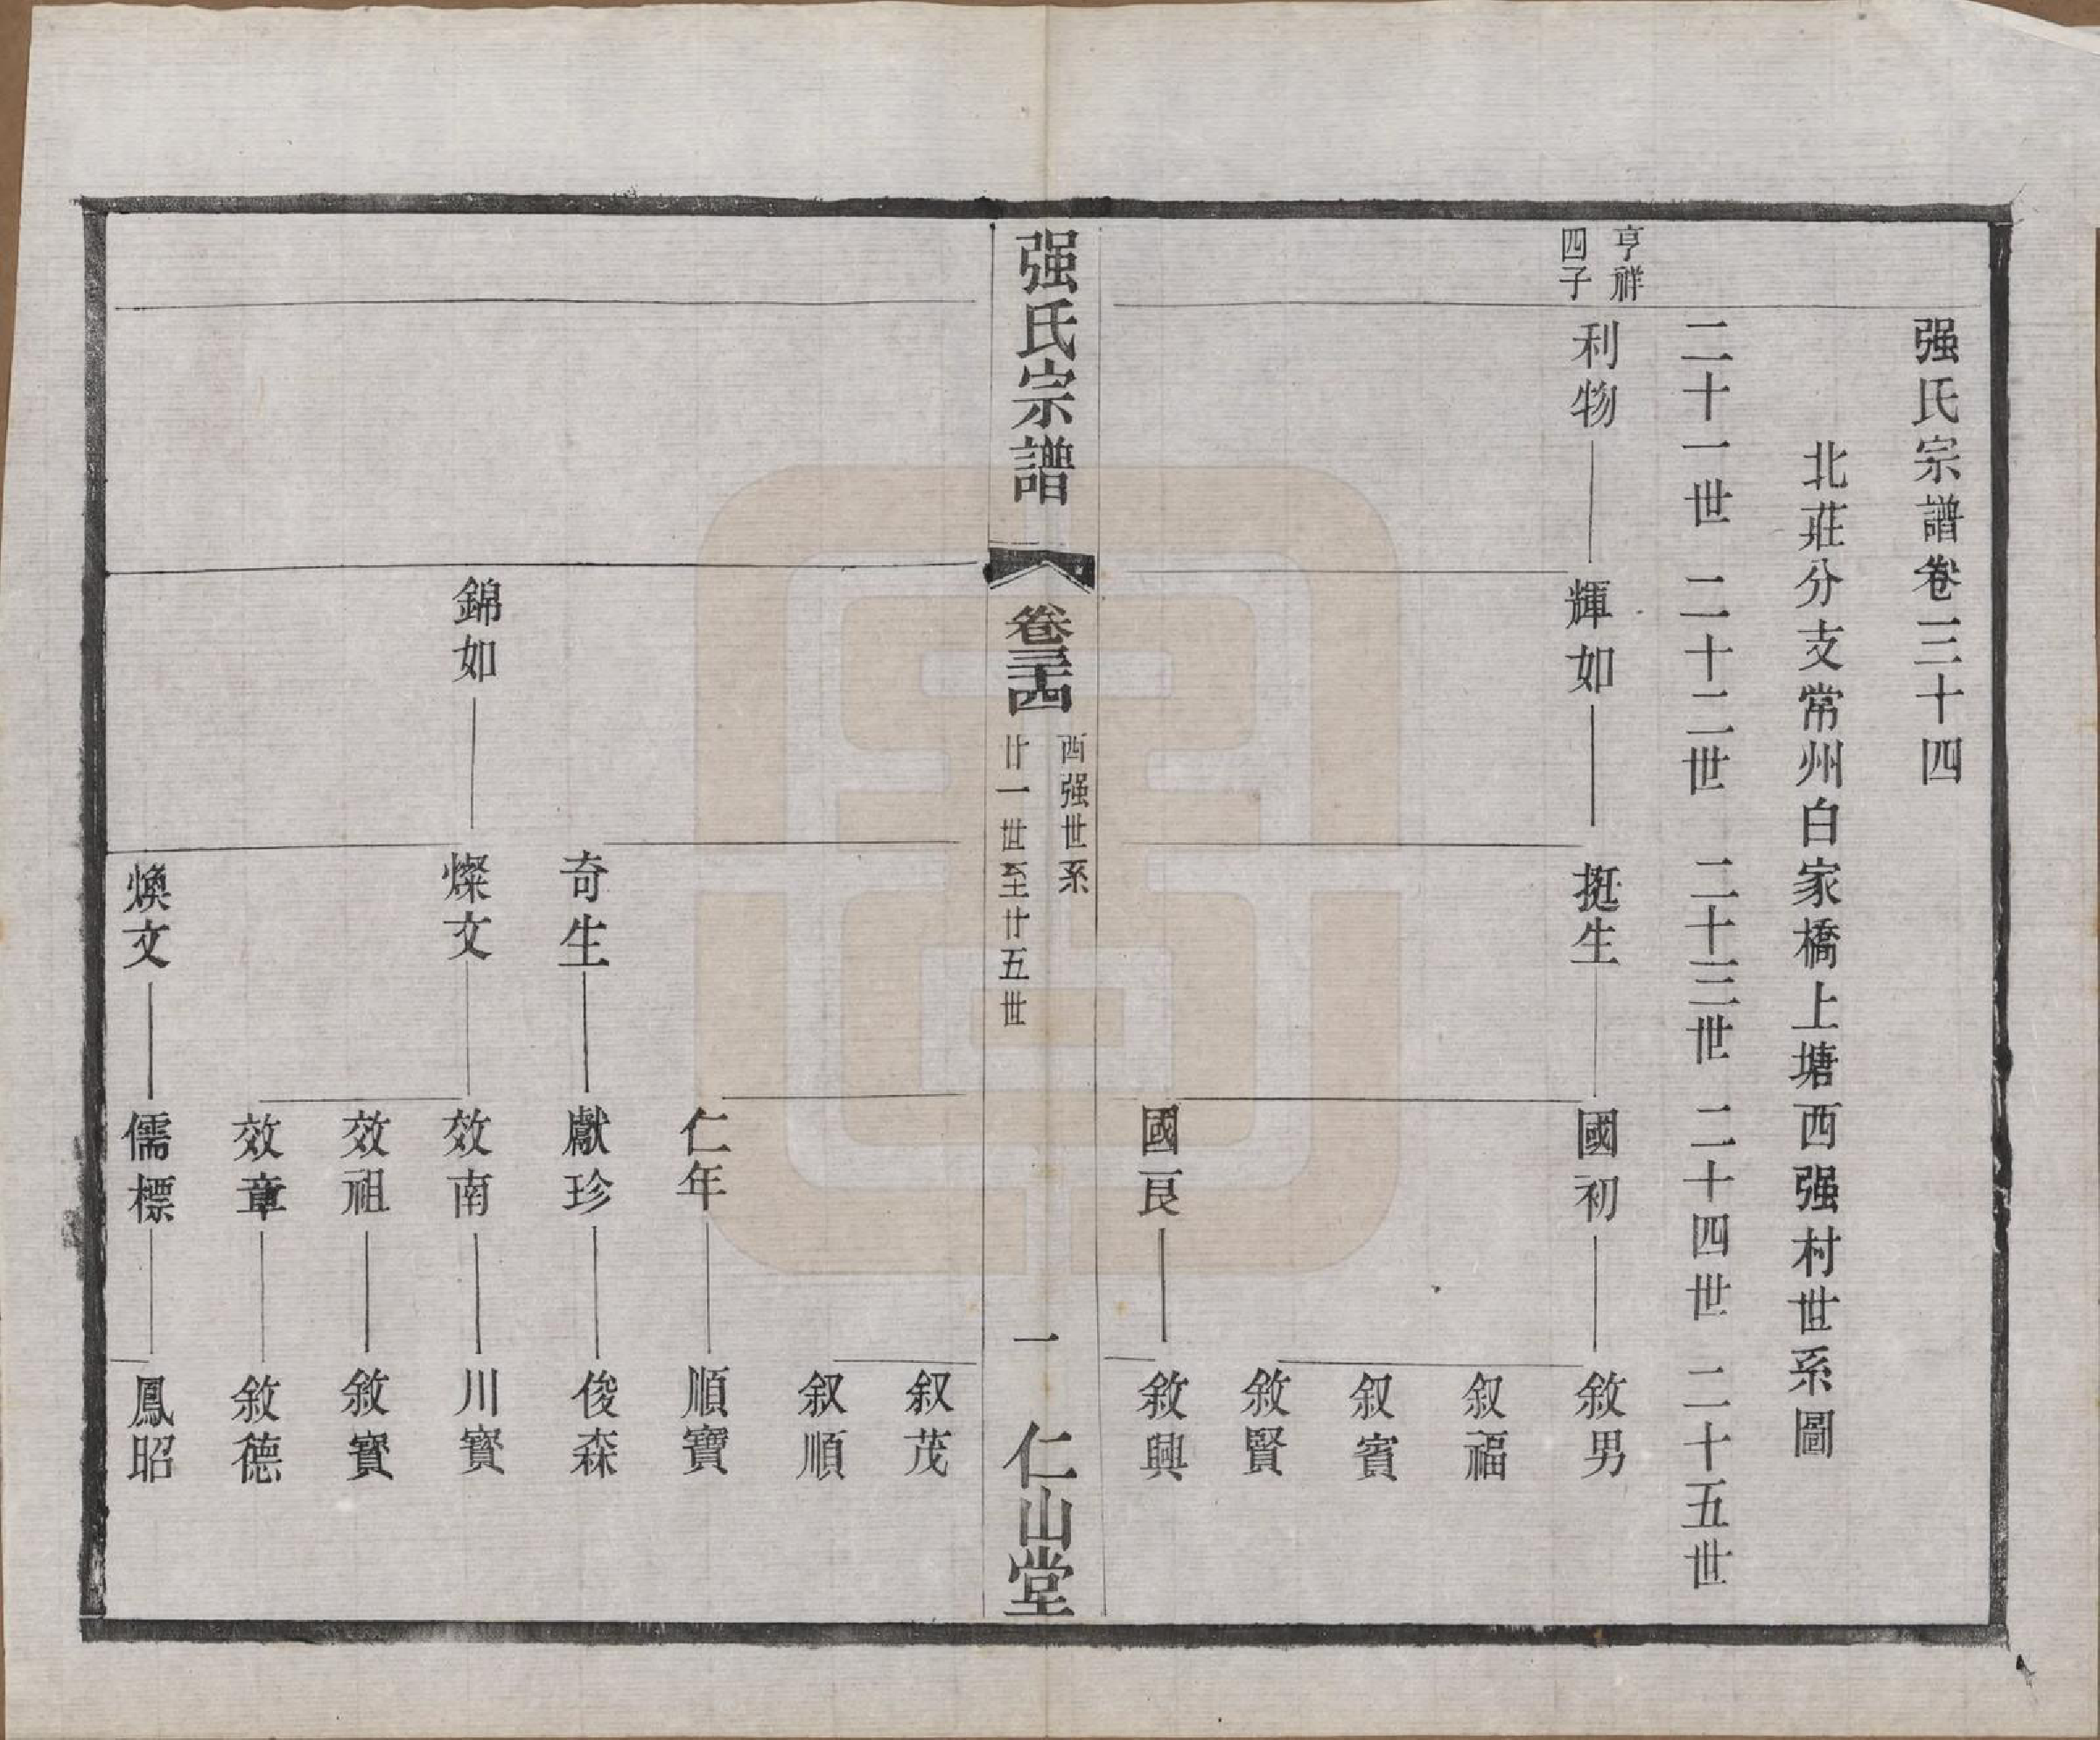 强氏宗譜卷三十四
北莊分支常州白家橋上塘西强村世系圖
二十一世 二十二世 二十三世 二十四世 二十五世
亨祥
四子
利物 輝如 挺生 國初 敘男
叙福
叙賓
敘賢
國良 敘興
强氏宗譜 卷三十四 西强世系 廿一世至廿五世 一 仁山堂
叙茂
叙順
仁年 順寶
奇生 獻珍 俊森
錦如 燦文 效南 川寳
效祖 敘寳
效章 敘德
煥文 儒標 鳳昭